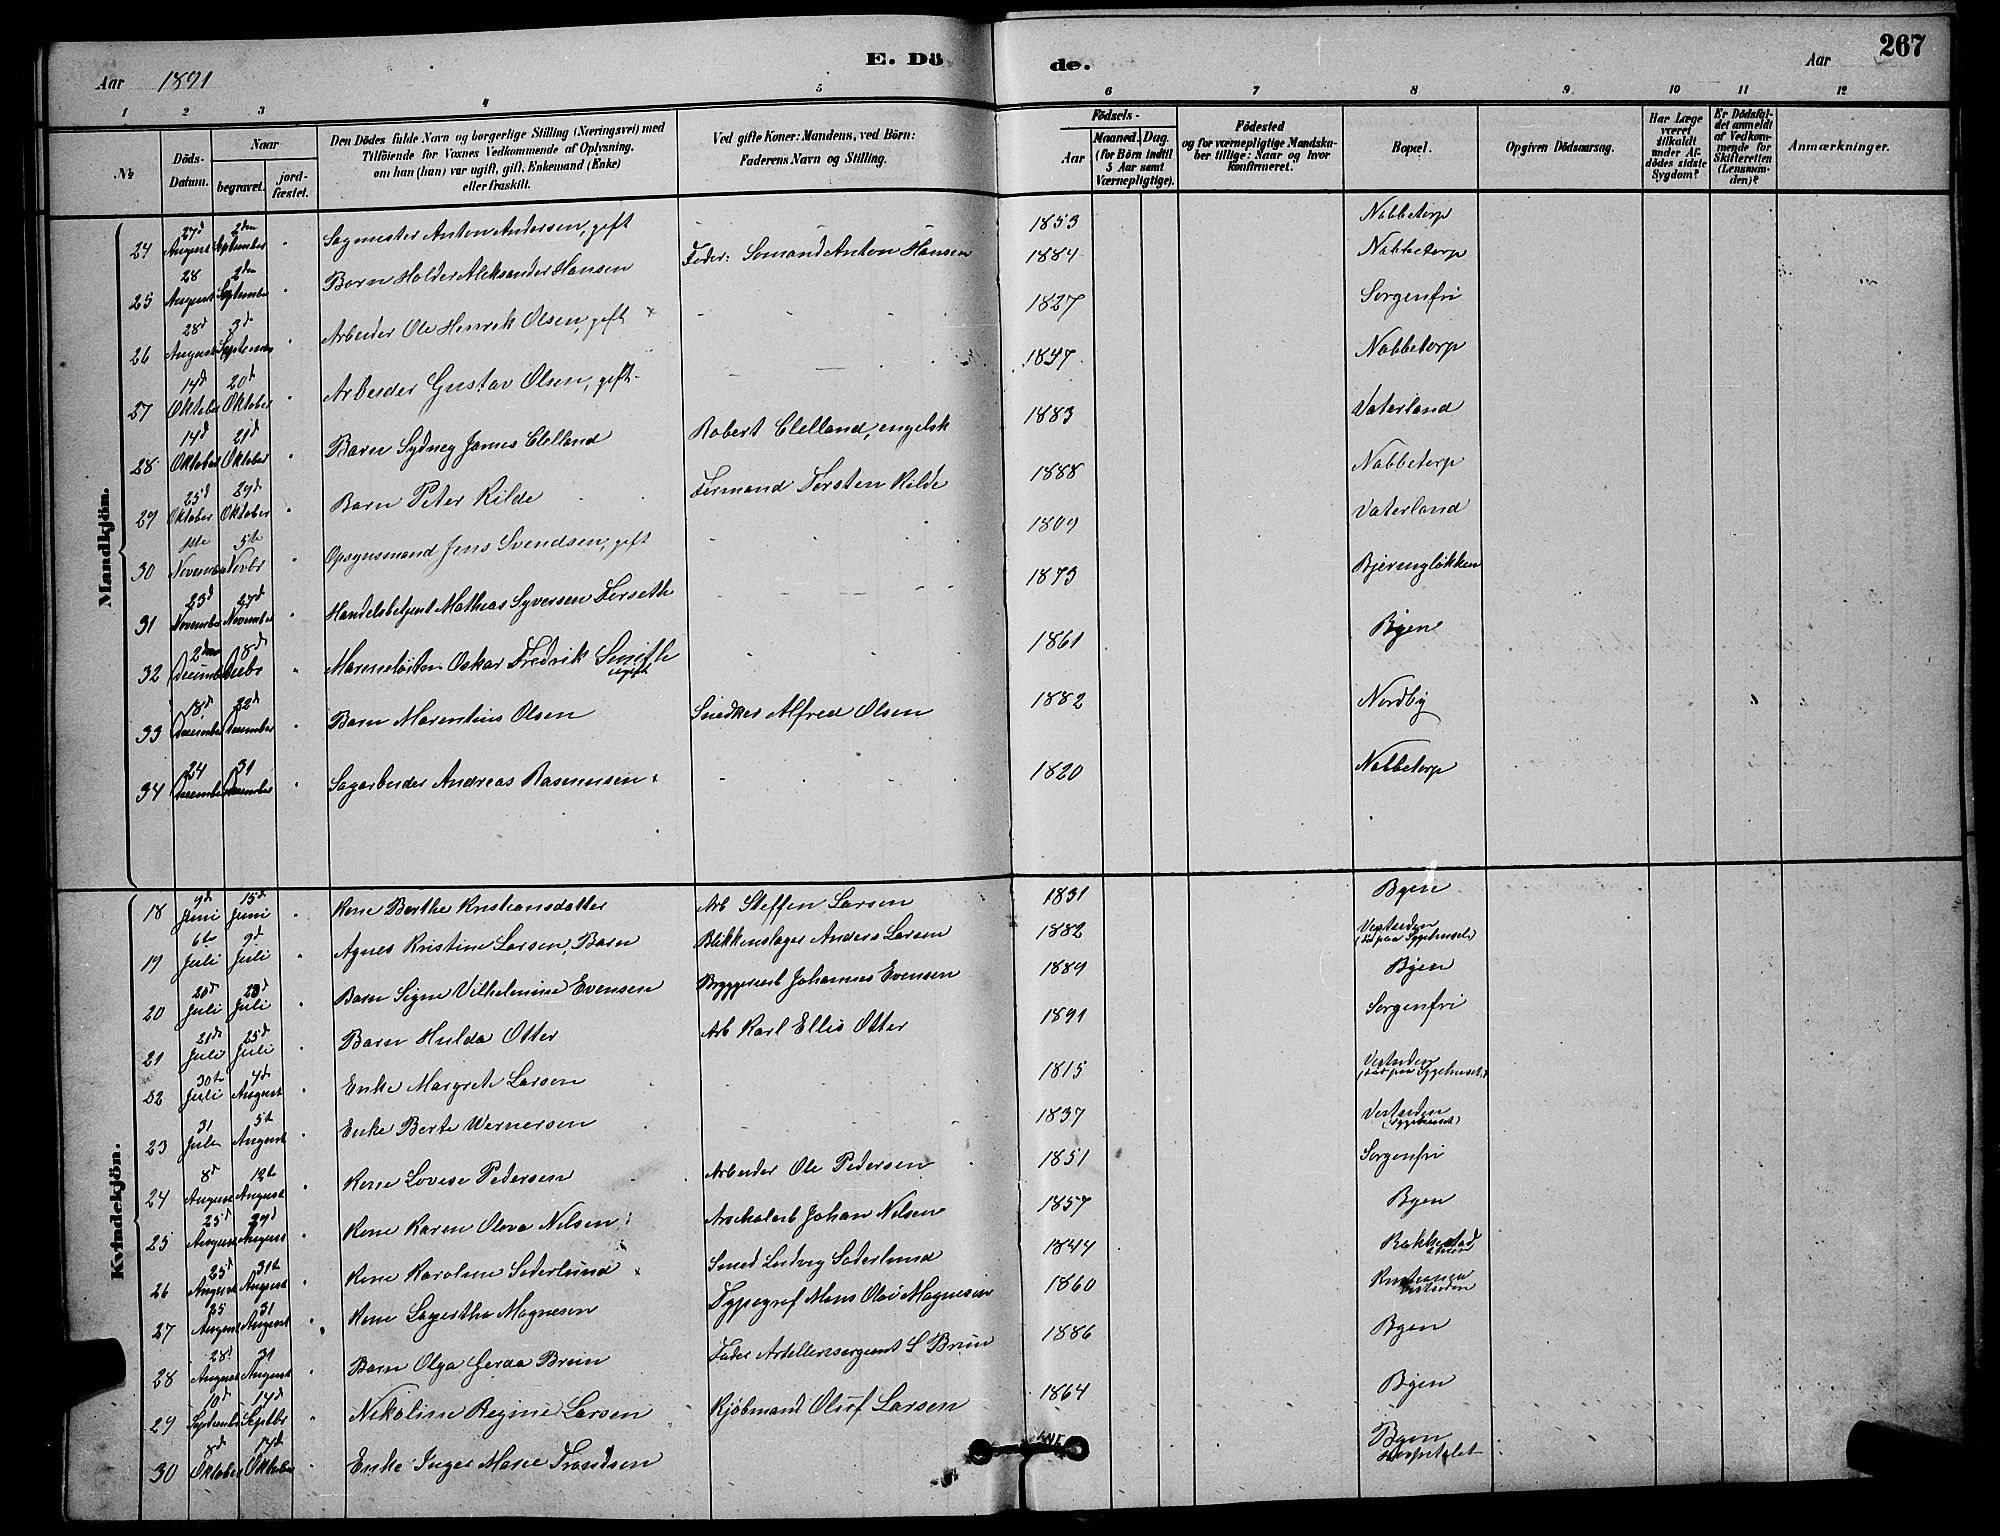 Aar 1891
E. Dö
de.
Aar
267
1 2 3 4 5 6 7 8 9 10 11 12
№
Döds-Datum.
Naar
begravet.
jord-fæstet.
Den Dödes fulde Navn og borgerlige Stilling (Næringsvei) med
Tilföiende for Voxnes Vedkommende af Oplysning,
om han (hun) var ugift, gift, Enkemand (Enke)
eller fraskilt.
Ved gifte Koner: Mandens, ved Börn:
Faderens Navn og Stilling.
Födsels-
Aar
Maaned. Dag.
(for Börn indtil
5 Aar samt
Værnepligtige).
Födested
og for værnepligtige Mandska-
ber tillige: Naar og hvor
konfirmeret.
Bopæl.
Opgiven Dödsaarsag.
Har Læge
været
tilkaldt
under Af-
dödes sidste
Sygdom?
Er Dödsfal-
det anmeldt
af Vedkom-
mende for
Skifteretten
(Lensman-
den)?
Anmærkninger.
Mandkjön.
24 27d August 2den September " Sagmester Anton Andersen, gift - 1853 Nabbetorp
25 28 August 2den September " Barn Holder Aleksander Hansen Fader: Sømand Anton Hansen 1884 Nabbetorp
26 28d August 3d September " Arbeider Ole Henrik Olsen, gift - - - 1827 Sorgenfri
27 14d Oktober 20d Oktober " Arbeider Gustav Olsen, gift - - - 1847 Nabbetorp
28 14d Oktober 21d Oktober " Barn Sydney James Clelland Robert Clelland, engelsk 1883 Vaterland
29 25d Oktober 29d Oktober " Barn Peter Kilde Formand Torsten Kilde 1888 Nabbetorp
30 1ste November 5te Novbr " Opsynsmand Jens Svendsen, gift - - - 1809 Vaterland
31 23d November 27d November " Handelsbetjent Mathias Syversen Forseth - - - 1873 Bjerengløkken
32 2den December 8d Decbr " Oskar Fredrik Smith ugift - - 1861 Byen
33 18d December 22d December " Barn Marentius Olsen Snedker Alfred Olsen 1882 Nordby
34 24 December 31 December " Sagarbeider Andreas Rasmussen - - - 1820 Nabbetorp
Kvindekjön.
18 9d Juni 15d Juni " Kone Berthe Kristiansdatter Arb Steffen Larsen 1831 Byen
19 6te Juli 9d Juli " Agnes Kristine Larsen, Barn Blikkenslager Anders Larsen 1882 Vestsiden (død paa Sygehuset)
20 20d Juli 23d Juli " Barn Signe Vilhelmine Evensen Bryggeriarb Johannes Evensen 1889 Byen
21 21de Juli 25d Juli " Barn Hulda Otter Arb Karl Ellis Otter 1891 Sorgenfri
22 30te Juli 4d August " Enke Margrete Larsen - - - 1815 Vestsiden (død paa Sygehuset)
23 31 Juli 5te August " Enke Berte Wernersen - - - 1837 Vestsiden (Sygehuset)
24 8d August 12te August " Kone Lovise Pedersen Arbeider Ole Pedersen 1851 Sorgenfri
25 25d August 29d August " Kone Karen Olava Nilsen Johan Nilsen 1857 Byen
26 25d August 31te August " Kone Karoline Søderlund Smed Ludvig Søderlund 1844 Bakkestad
27 25 August 31 August " Kone Lagertha Magnesen Typograf Mons Olai Magnesen 1860 Kristiania Vestsiden
28 28d August 31 August " Barn Olga Gerda Bruun Fader S Bruun 1886 Byen
29 10d September 14d Septbr " Nikoline Regine Larsen Kjøbmand Oluf Larsen 1864 Byen
30 8d Oktober 14d Oktober " Enke Inger Marie Trondsen Byen Hospitalet